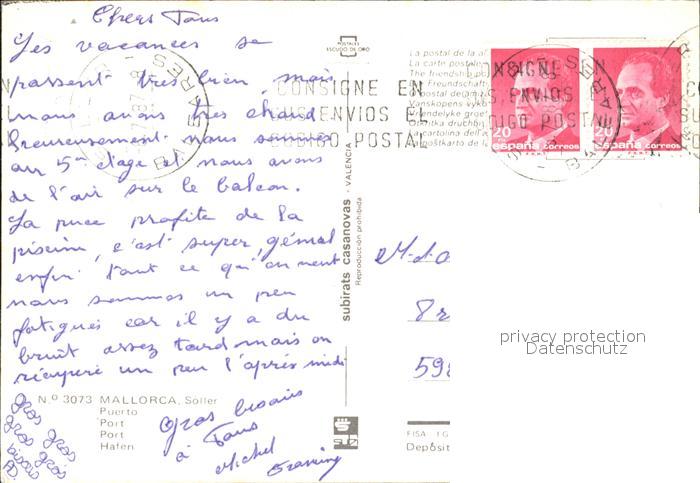 Chers Tous
Les vacances se
passent très bien, mais
nous avons très chaud
heureusement nous sommes
au 5ème étage et nous avons
de l'air sur le balcon.
La puce profite de la
piscine, c'est super, génial
enfin tout ce qu'on veut
nous sommes un peu
fatigués car il y a du
bruit assez tard mais on
récupère un peu l'après midi
gros bisous
à Tous
Michel
gros gros
gros gros
bisous
N.º 3073 MALLORCA, Soller
Puerto
Port
Port
Hafen
POSTALES
ESCUDO DE ORO
subirats casanovas - VALENCIA
Reproducción prohibida
CONSIGNE EN
SUS ENVIOS EL
CODIGO POSTAL
BALEARES
La postal de la
La carte postale
The friendship
Freundschafts
20
españa correos
20
españa correos
CONSIGNE EN
SUS ENVIOS EL
CODIGO POSTAL
8 r
59
FISA
Depósit
privacy protection
Datenschutz